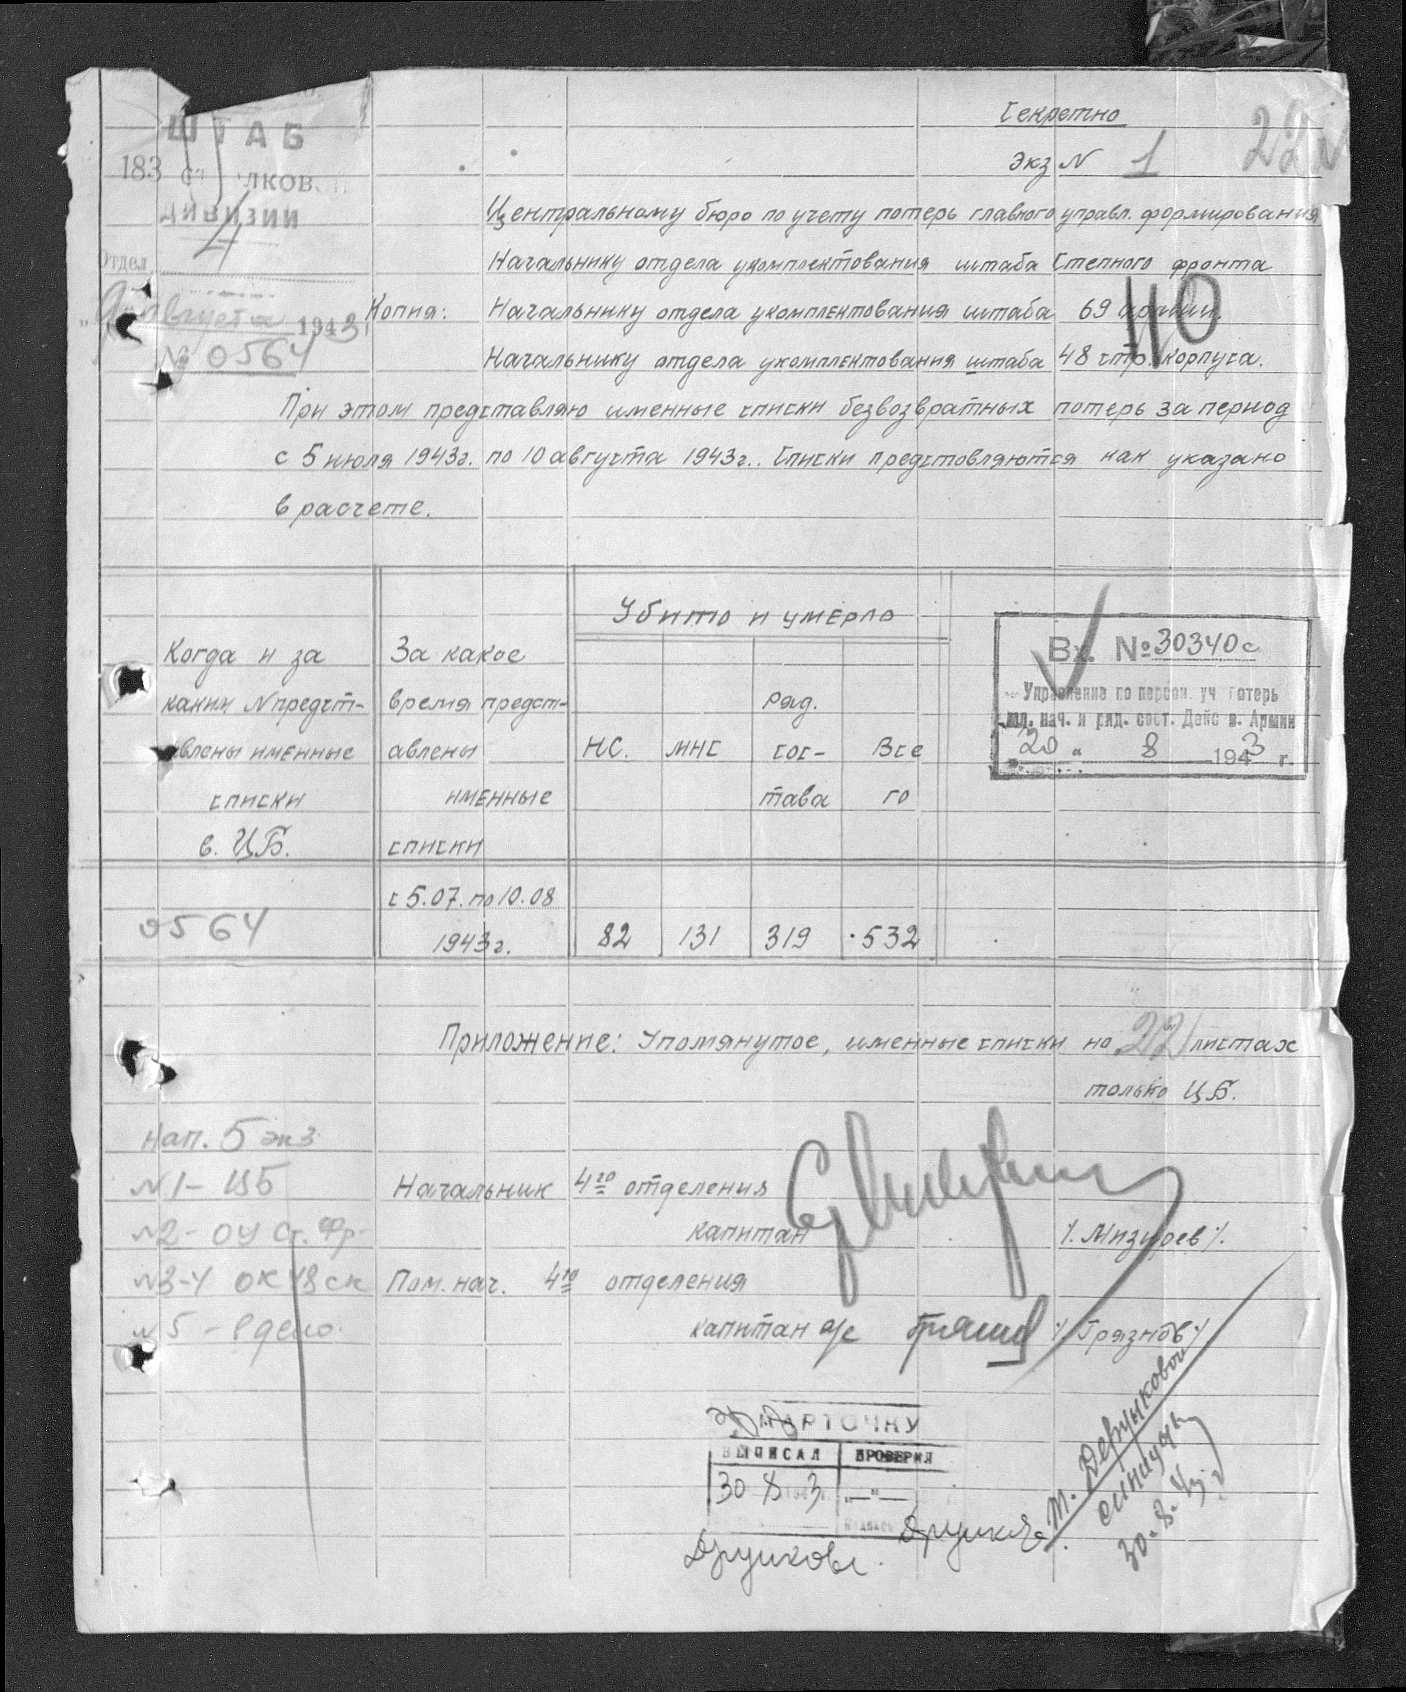 Секретно
Экз N 1
22
ШТАБ
183
ДИВИЗИИ
4
Отдел
августа 1943
№ 0564
Центральному бюро по учету потерь главного управл. формирования
Начальнику отдела укомплектования штаба Степного фронта
Копия: Начальнику отдела укомплектования штаба 69 армии.
110
Начальнику отдела укомплектования штаба 48 стр. корпуса.
При этом представляю именные списки безвозвратных потерь за период
с 5 июля 1943г. по 10 августа 1943г.. Списки представляются как указано
в расчете.
Когда и за
каким N предст-
авлены именные
списки
в. ЦБ.
За какое
время предст-
авлены
именные
списки
Убито и умерло
НС.
МНС
ряд.
сос-
тава
Все
го
Вх. № 30340с
Управление по персон. уч. потерь
мл. нач. и ряд. сост. Дейс в. Армии
" 20 " 8 1943 г.
0564
с 5.07. по 10.08
1943г.
82 131 319 532
Приложение: Упомянутое, именные списки на 22 листах
только ЦБ.
нап. 5 экз
N1 - ЦБ
N2 - ОУ Ст. Фр.
N3-4 ОК 48 ск
N5 - в дело.
Начальник 4го отделения
капитан /. Мизиров /.
Пом. нач. 4го отделения
капитан а/с / Грязнов /
КАРТОЧКУ
ВЫПИСАЛ ПРОВЕРИЛ
30 8 3 —"—
30.8.43